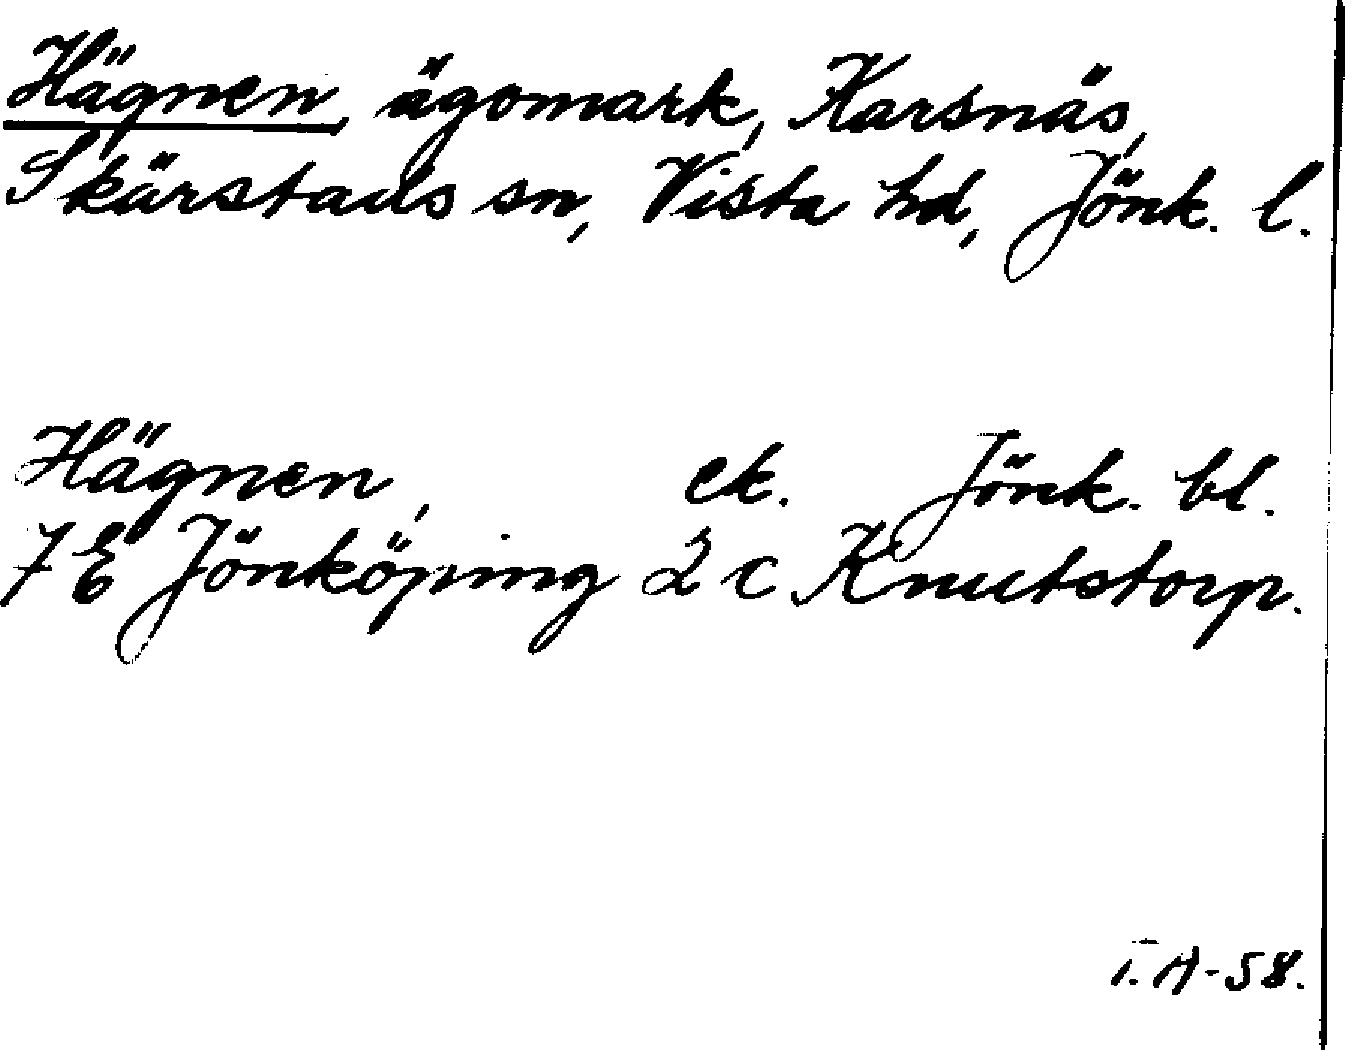 Hägnen, ägomark, Karsnäs,
Skärstads sn, Vista hd, Jönk. l.
Hägnen, ek. Jönk. bl.
7 E Jönköping 2 c Knutstorp.
I. A-58.